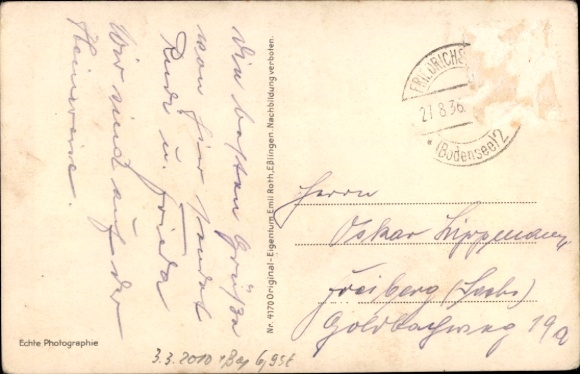 Die besten Grüße
von hier sendet
Rudi u. Frieda
Wir sind auf der
Heimreise.
Nr. 4170 Original-Eigentum Emil Roth, Eßlingen. Nachbildung verboten.
FRIEDRICHS
27.8.36.
* (Bodensee) 2
Herrn
Oskar Lippmann,
Freiberg (Sachs)
Goldbachweg 19a
Echte Photographie
3.3.2010